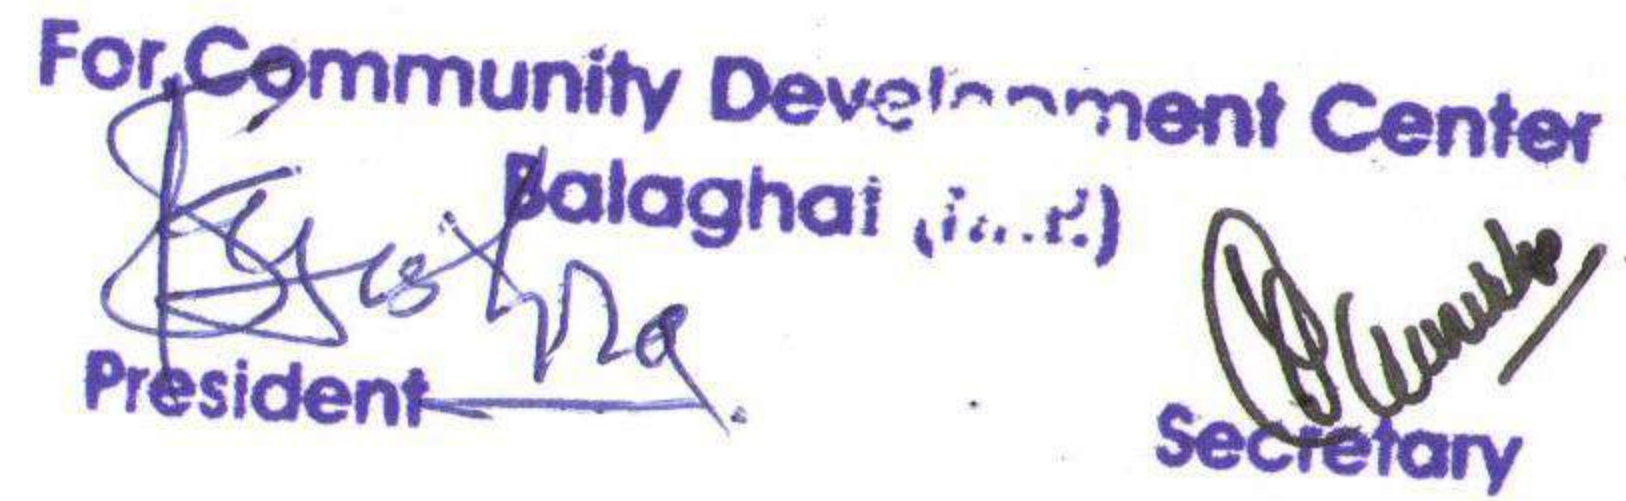 For, Community Development Center
Balaghat (M.P.)
President
Secretary